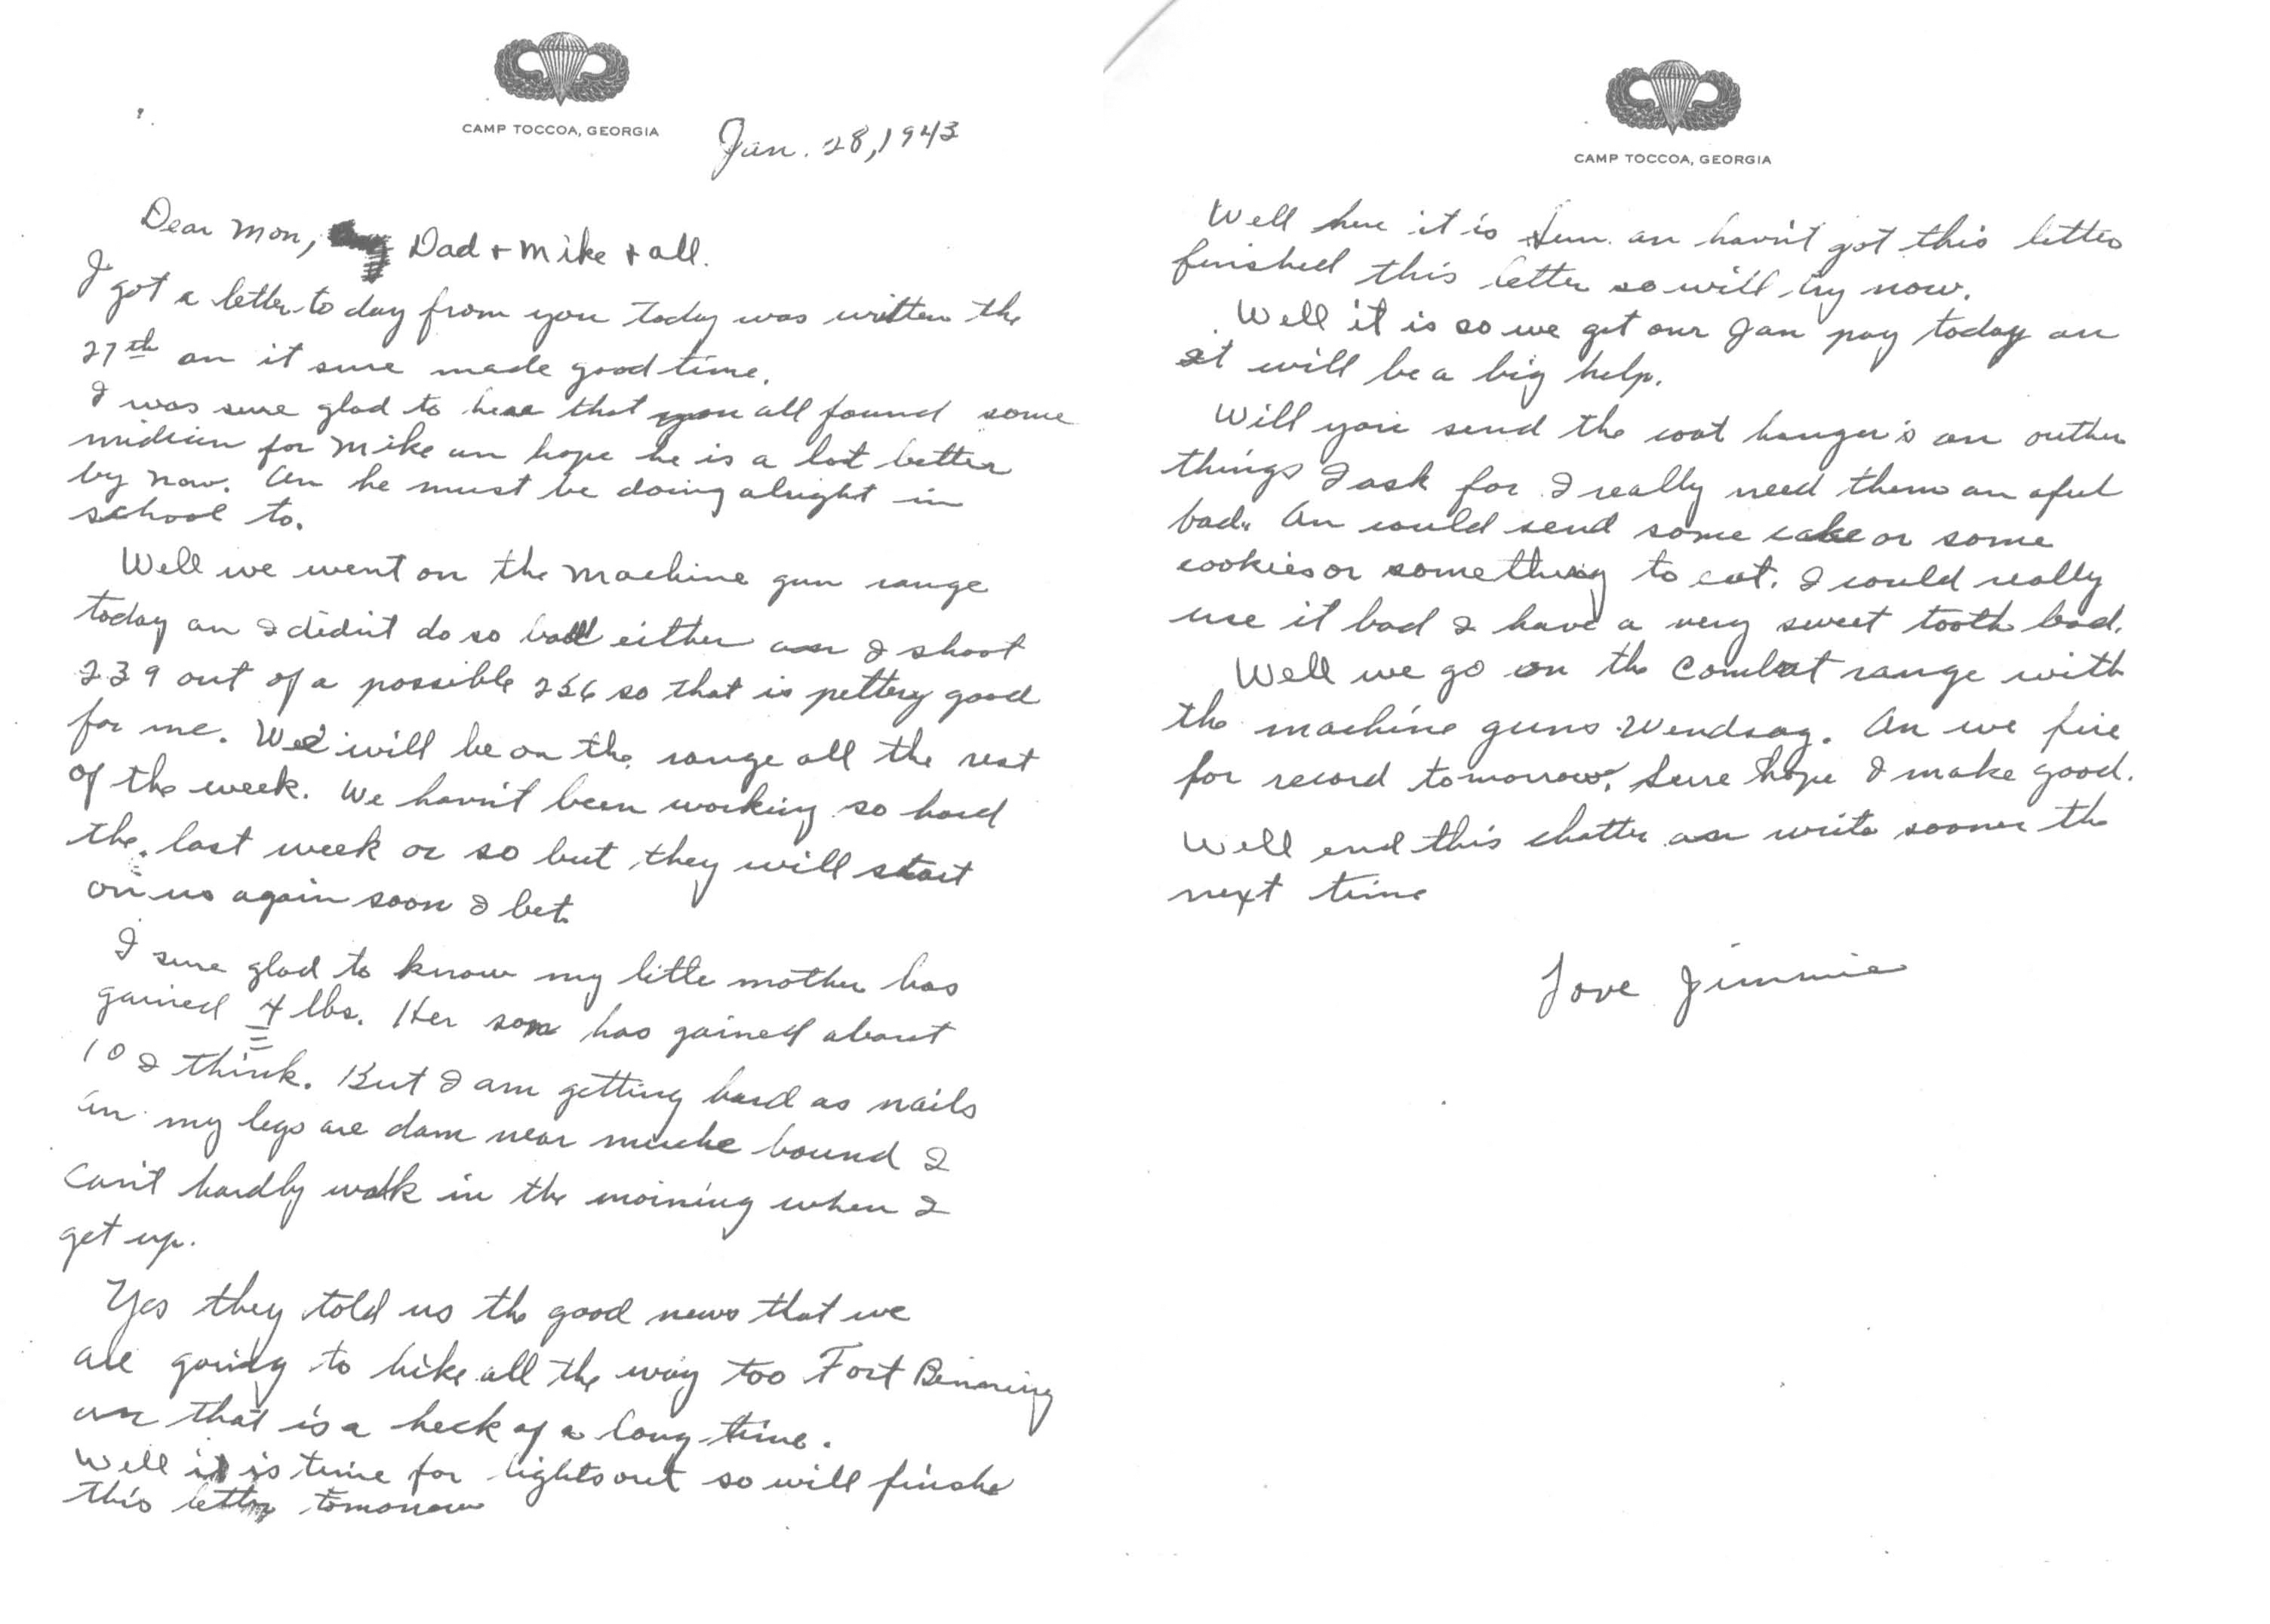 CAMP TOCCOA, GEORGIA
Jan. 28, 1943
Dear Mon, Dad + Mike + all.
I got a letter to day from you today was written the
27th an it sure made good time.
I was sure glad to hear that you all found some
midicin for Mike an hope he is a lot better
by now. An he must be doing alright in
school to.
Well we went on the machine gun range
today an I didn't do so bad either an I shoot
239 out of a possible 256 so that is pettery good
for me. We will be on the range all the rest
of the week. We havn't been working so hard
the last week or so but they will start
on us again soon I bet.
I sure glad to know my little mother has
gained 4 lbs. Her son has gained about
10 I think. But I am getting hard as nails
an my legs are dam near mucke bound I
can't hardly walk in the morning when I
get up.
Yes they told us the good news that we
are going to hike all the way too Fort Benning
an that is a heck of a long time.
Well it is time for lights out so will finshe
this letter tomorrow
CAMP TOCCOA, GEORGIA
Well here it is Sun. an havn't got this letter
finished this letter so will try now.
Well it is so we get our Jan pay today an
it will be a big help.
Will you send the coat hanger's an outher
things I ask for I really need them an aful
bad. An could send some cake or some
cookies or something to eat. I could really
use it bad I have a very sweet tooth bad.
Well we go on the combat range with
the machine guns Wendsay. An we fire
for record tomorrow. Sure hope I make good.
Well end this chatter an write sooner the
next time
Love Jimmie